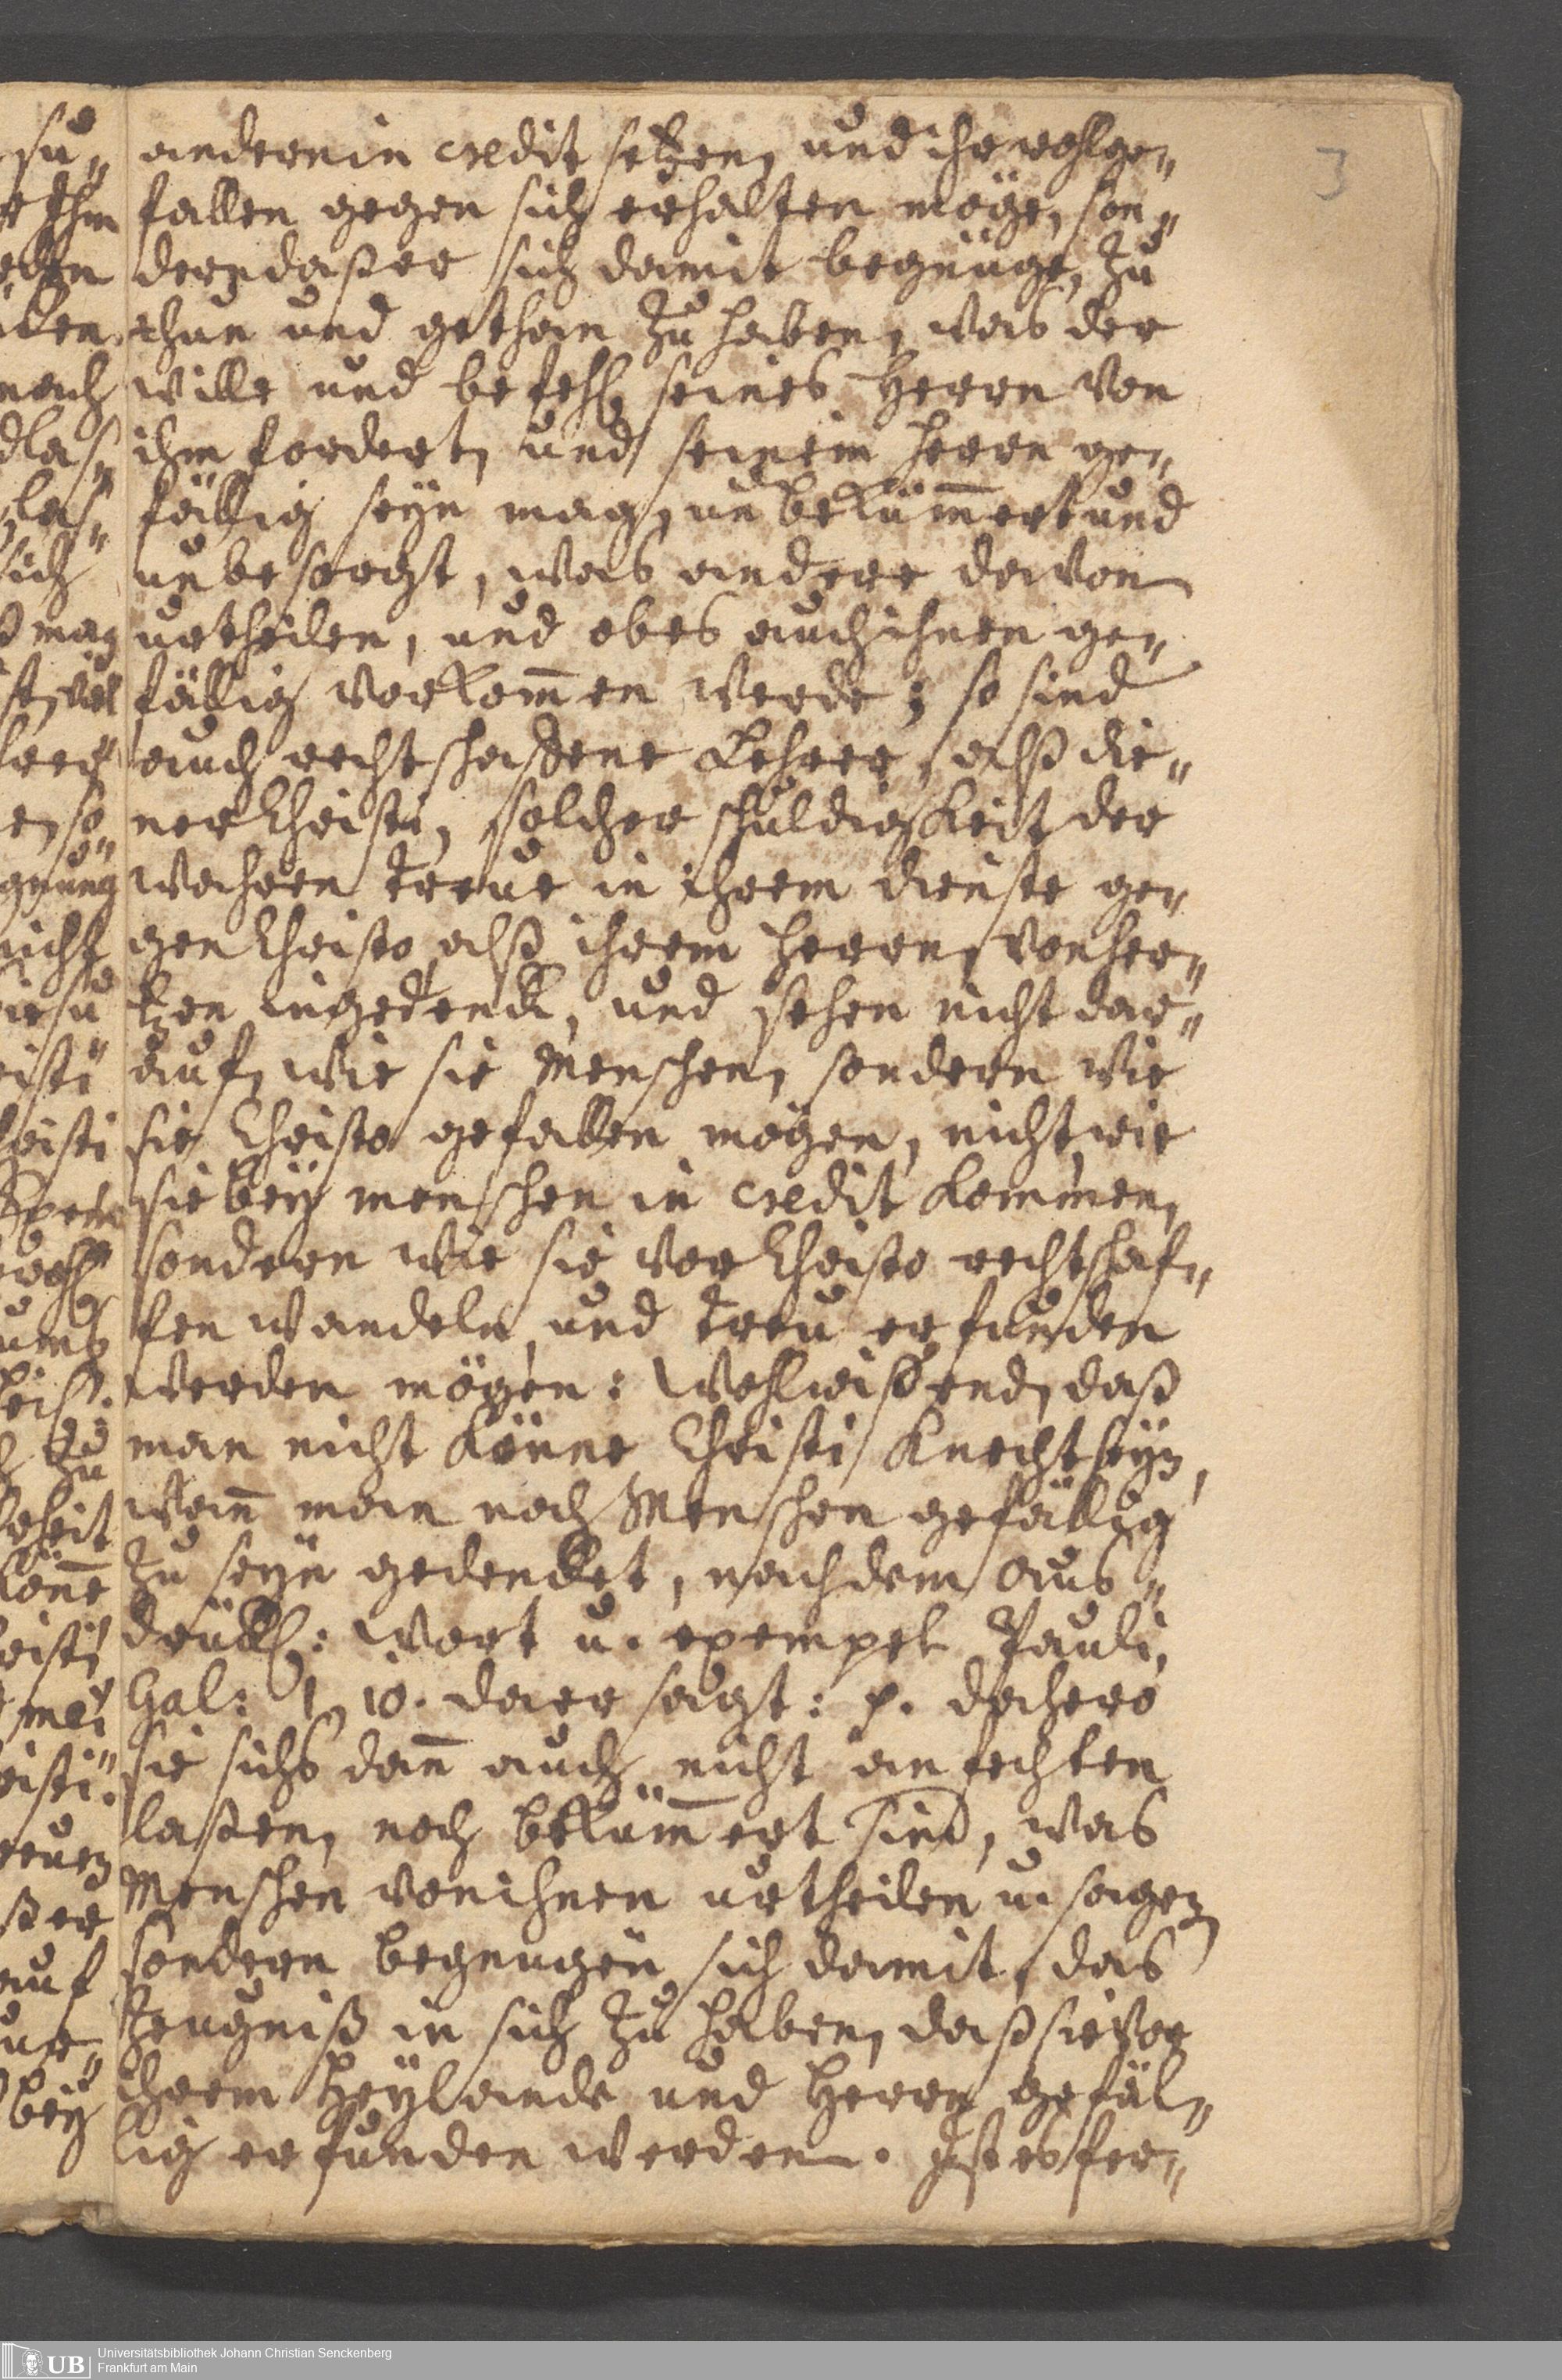 3
andern in credit setzen, und ihr wohlge¬
fallen gegen sich erhalten möge, son¬
dern daß er sich damit begnüge, zu
thun und gethan zu haben, was der
wille und befehl seines Herrn von
ihm fordert, und seinem Herrn ge¬
fällig seÿn mag, unbeküm̄ert und
unbesorgt, was andere davon
urtheilen, und ob es auch ihnen ge¬
fällig vorkom̄en werde; so sind
auch rechtschaffene Lehrer, alß die¬
ner Christi, solcher schuldigkeit der
wahren treue in ihrem dienste ge¬
gen Christo alß ihrem Herrn, von her¬
tzen ingedenck, und sehen nicht dar¬
auf, wie sie Menschen, sondern wie
sie Christo gefallen mögen, nicht wie
sie beÿ menschen in credit kommen,
sondern wie sie vor Christo rechtschaf¬
fen wandeln und treu erfunden
werden mögen: Wohlwißend, daß
man nicht könne Christi Knecht seÿn,
wan̄ man noch Menschen gefällig
zu seÿn gedencket, nach dem aus¬
drückl: wort u. exempel Pauli,
Gal: 1, 10. da er sagt: p. dahero
sie sichs dan̄ auch nicht anfechten
laßen, noch beküm̄ert sind, was
Menschen von ihnen urtheilen u. sagen
sondern begnugen sich damit, das
Zeugniß in sich zu haben, daß sie vor
ihrem Heÿlande und Herrn gefäl¬
lig erfunden werden. Ist es fer¬
UB Universitätsbibliothek Johann Christian Senckenberg
Frankfurt am Main